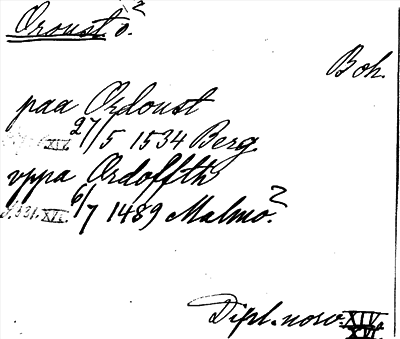 Oroust. ö. 2
Boh.
paa Ordoust
XIV. 27/5 1534 Berg.
vppa Ordoffth
s. 331. XVI. 6/7 1489 Malmö. 2
Dipl. norv. XIV.
XVI.